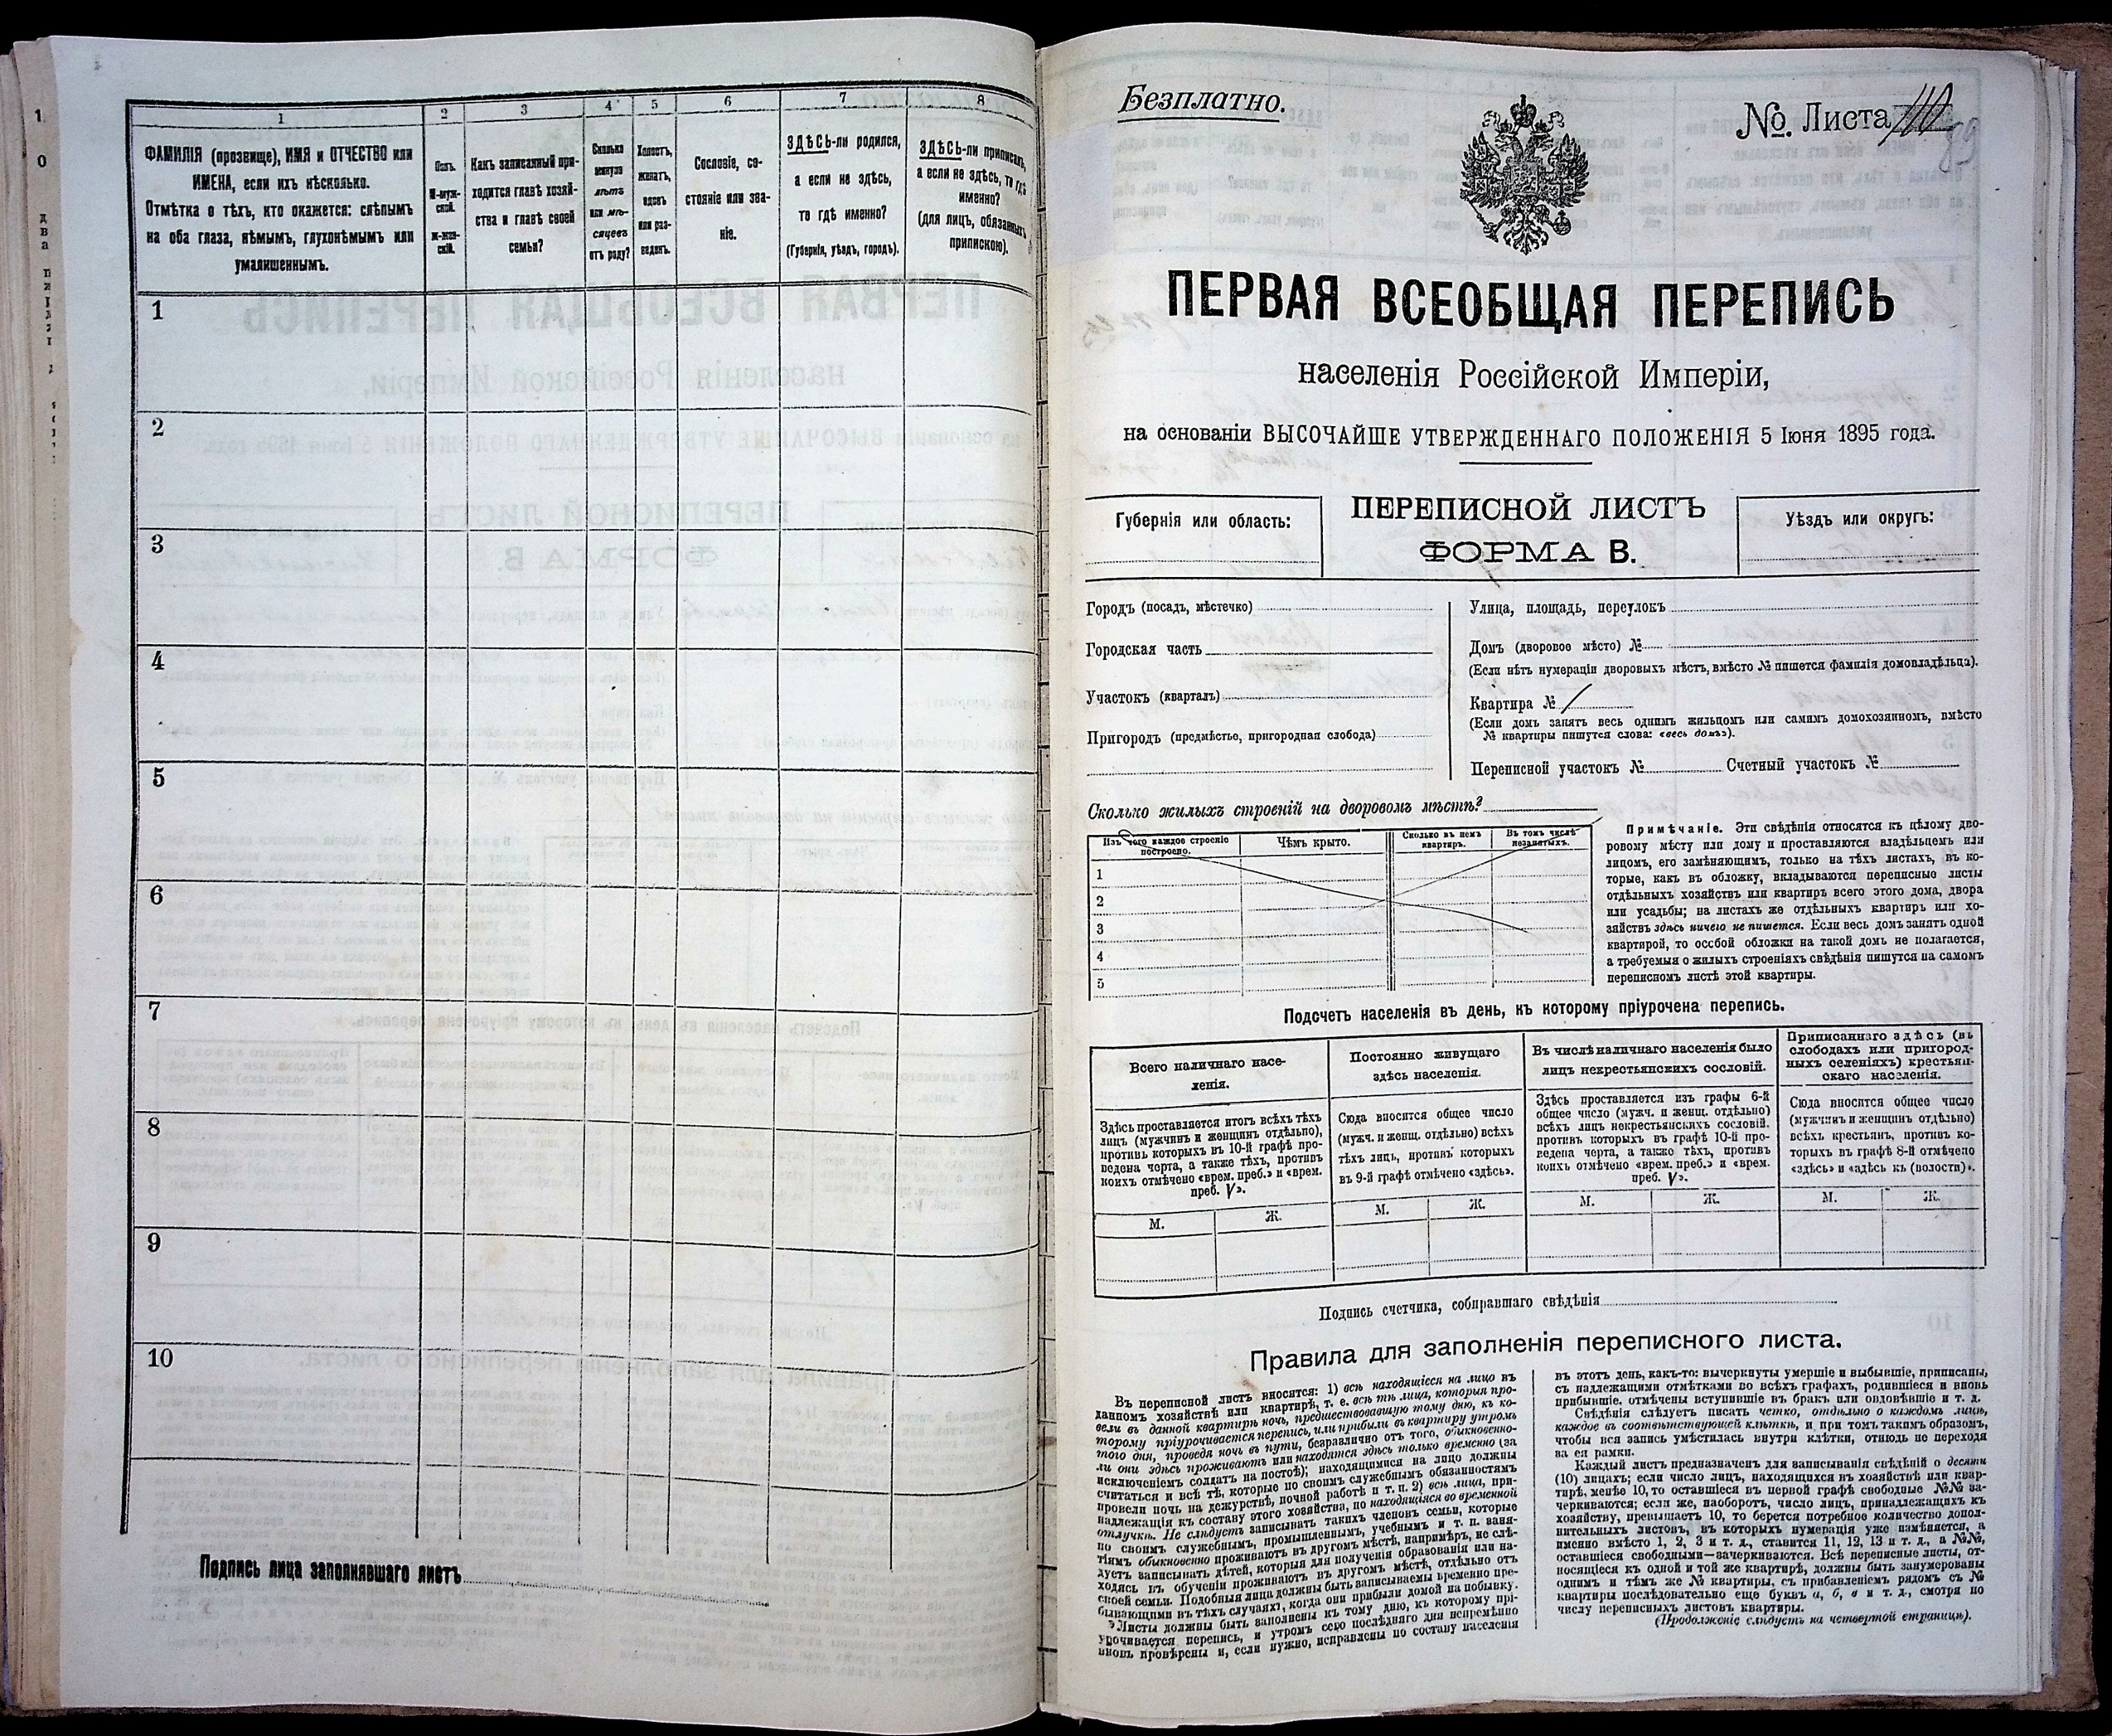 1 2 3 4 5 6 7 8
ФАМИЛІЯ (прозвище), ИМЯ и ОТЧЕСТВО или
ИМЕНА, если ихъ нѣсколько.
Отмѣтка о тѣхъ, кто окажется: слѣпымъ
на оба глаза, нѣмымъ, глухонѣмымъ или
умалишеннымъ.
Полъ.
М-муж-
ской.
Ж-жен-
скій.
Какъ записанный при-
ходится главѣ хозяй-
ства и главѣ своей
семьи?
Сколько
минуло
лѣтъ
или мѣ-
сяцевъ
отъ роду?
Холостъ,
женатъ,
вдовъ
или раз-
веденъ.
Сословіе, со-
стояніе или зва-
ніе.
ЗДѢСЬ-ли родился,
а если не здѣсь,
то гдѣ именно?
(Губернія, уѣздъ, городъ).
ЗДѢСЬ-ли приписанъ,
а если не здѣсь, то гдѣ
именно?
(для лицъ, обязанныхъ
припискою).
1
2
3
4
5
6
7
8
9
10
Подпись лица заполнявшаго листъ
Безплатно.
№ Листа 110
89
ПЕРВАЯ ВСЕОБЩАЯ ПЕРЕПИСЬ
населенія Россійской Имперіи,
на основаніи ВЫСОЧАЙШЕ УТВЕРЖДЕННАГО ПОЛОЖЕНІЯ 5 Іюня 1895 года.
Губернія или область:
ПЕРЕПИСНОЙ ЛИСТЪ
ФОРМА В.
Уѣздъ или округъ:
Городъ (посадъ, мѣстечко)
Городская часть
Участокъ (кварталъ)
Пригородъ (предмѣстье, пригородная слобода)
Улица, площадь, переулокъ
Домъ (дворовое мѣсто) №
(Если нѣтъ нумераціи дворовыхъ мѣстъ, вмѣсто № пишется фамилія домовладѣльца).
Квартира №
(Если домъ занятъ весь однимъ жильцомъ или самимъ домохозяиномъ, вмѣсто
№ квартиры пишутся слова: «весь домъ»).
Переписной участокъ № Счетный участокъ №
Сколько жилыхъ строеній на дворовомъ мѣстѣ?
Изъ чего каждое строеніе
построено.
Чѣмъ крыто.
Сколько въ немъ
квартиръ.
Въ томъ числѣ
незанятыхъ.
1
2
3
4
5
Примѣчаніе. Эти свѣдѣнія относятся къ цѣлому дво-
ровому мѣсту или дому и проставляются владѣльцемъ или
лицомъ, его замѣняющимъ, только на тѣхъ листахъ, въ ко-
торые, какъ въ обложку, вкладываются переписные листы
отдѣльныхъ хозяйствъ или квартиръ всего этого дома, двора
или усадьбы; на листахъ же отдѣльныхъ квартиръ или хо-
зяйствъ здѣсь ничего не пишется. Если весь домъ занятъ одной
квартирой, то особой обложки на такой домъ не полагается,
а требуемыя о жилыхъ строеніяхъ свѣдѣнія пишутся на самомъ
переписномъ листѣ этой квартиры.
Подсчетъ населенія въ день, къ которому пріурочена перепись.
Всего наличнаго насе-
ленія.
Здѣсь проставляется итогъ всѣхъ тѣхъ
лицъ (мужчинъ и женщинъ отдѣльно),
противъ которыхъ въ 10-й графѣ про-
ведена черта, а также тѣхъ, противъ
коихъ отмѣчено «врем. преб.» и «врем.
преб. V».
М. Ж.
Постоянно живущаго
здѣсь населенія.
Сюда вносится общее число
(мужч. и женщ. отдѣльно) всѣхъ
тѣхъ лицъ, противъ которыхъ
въ 9-й графѣ отмѣчено «здѣсь».
М. Ж.
Въ числѣ наличнаго населенія было
лицъ некрестьянскихъ сословій.
Здѣсь проставляется изъ графы 6-й
общее число (мужч. и женщ. отдѣльно)
всѣхъ лицъ некрестьянскихъ сословій.
противъ которыхъ въ графѣ 10-й про-
ведена черта, а также тѣхъ, противъ
коихъ отмѣчено «врем. преб.» и «врем.
преб. V».
М. Ж.
Приписаннаго здѣсь (въ
слободахъ или пригород-
ныхъ селеніяхъ) крестьян-
скаго населенія.
Сюда вносится общее число
(мужчинъ и женщинъ отдѣльно)
всѣхъ крестьянъ, противъ ко-
торыхъ въ графѣ 8-й отмѣчено
«здѣсь» и «здѣсь къ (волости)».
М. Ж.
Подпись счетчика, собиравшаго свѣдѣнія
Правила для заполненія переписного листа.
Въ переписной листъ вносятся: 1) всѣ находящіеся на лицо въ
данномъ хозяйствѣ или квартирѣ, т. е. всѣ тѣ лица, которыя про-
вели въ данной квартирѣ ночь, предшествовавшую тому дню, къ ко-
торому пріурочивается перепись, или прибыли въ квартиру утромъ
того дня, проведя ночь въ пути, безразлично отъ того, обыкновенно-
ли они здѣсь проживаютъ или находятся здѣсь только временно (за
исключеніемъ солдатъ на постоѣ); находящимися на лицо должны
считаться и всѣ тѣ, которые по своимъ служебнымъ обязанностямъ
провели ночь на дежурствѣ, ночной работѣ и т. п. 2) всѣ лица, при-
надлежащія къ составу этого хозяйства, но находящіяся во временной
отлучкѣ. Не слѣдуетъ записывать такихъ членовъ семьи, которые
по своимъ служебнымъ, промышленнымъ, учебнымъ и т. п. заня-
тіямъ обыкновенно проживаютъ въ другомъ мѣстѣ, напримѣръ, не слѣ-
дуетъ записывать дѣтей, которыя для полученія образованія или на-
ходясь въ обученіи проживаютъ въ другомъ мѣстѣ, отдѣльно отъ
своей семьи. Подобныя лица должны быть записываемы временно пре-
бывающими въ тѣхъ случаяхъ, когда они прибыли домой на побывку.
Листы должны быть заполнены къ тому дню, къ которому прі-
урочивается перепись, и утромъ сего послѣдняго дня непремѣнно
вновь провѣрены и, если нужно, исправлены по составу населенія
въ этотъ день, какъ-то: вычеркнуты умершіе и выбывшіе, приписаны,
съ надлежащими отмѣтками во всѣхъ графахъ, родившіеся и вновь
прибывшіе, отмѣчены вступившіе въ бракъ или овдовѣвшіе и т. д.
Свѣдѣнія слѣдуетъ писать четко, отдѣльно о каждомъ лицѣ,
каждое въ соотвѣтствующей клѣткѣ, и при томъ такимъ образомъ,
чтобы вся запись умѣстилась внутри клѣтки, отнюдь не переходя
за ея рамки.
Каждый листъ предназначенъ для записыванія свѣдѣній о десяти
(10) лицахъ; если число лицъ, находящихся въ хозяйствѣ или квар-
тирѣ, менѣе 10, то оставшіеся въ первой графѣ свободные №№ за-
черкиваются; если же, наоборотъ, число лицъ, принадлежащихъ къ
хозяйству, превышаетъ 10, то берется потребное количество допол-
нительныхъ листовъ, въ которыхъ нумерація уже измѣняется, а
именно вмѣсто 1, 2, 3 и т. д., ставится 11, 12, 13 и т. д., а №№,
оставшіеся свободными—зачеркиваются. Всѣ переписные листы, от-
носящіеся къ одной и той же квартирѣ, должны быть занумерованы
однимъ и тѣмъ же № квартиры, съ прибавленіемъ рядомъ съ №
квартиры послѣдовательно еще буквъ а, б, в и т. д., смотря по
числу переписныхъ листовъ квартиры.
(Продолженіе слѣдуетъ на четвертой страницѣ).